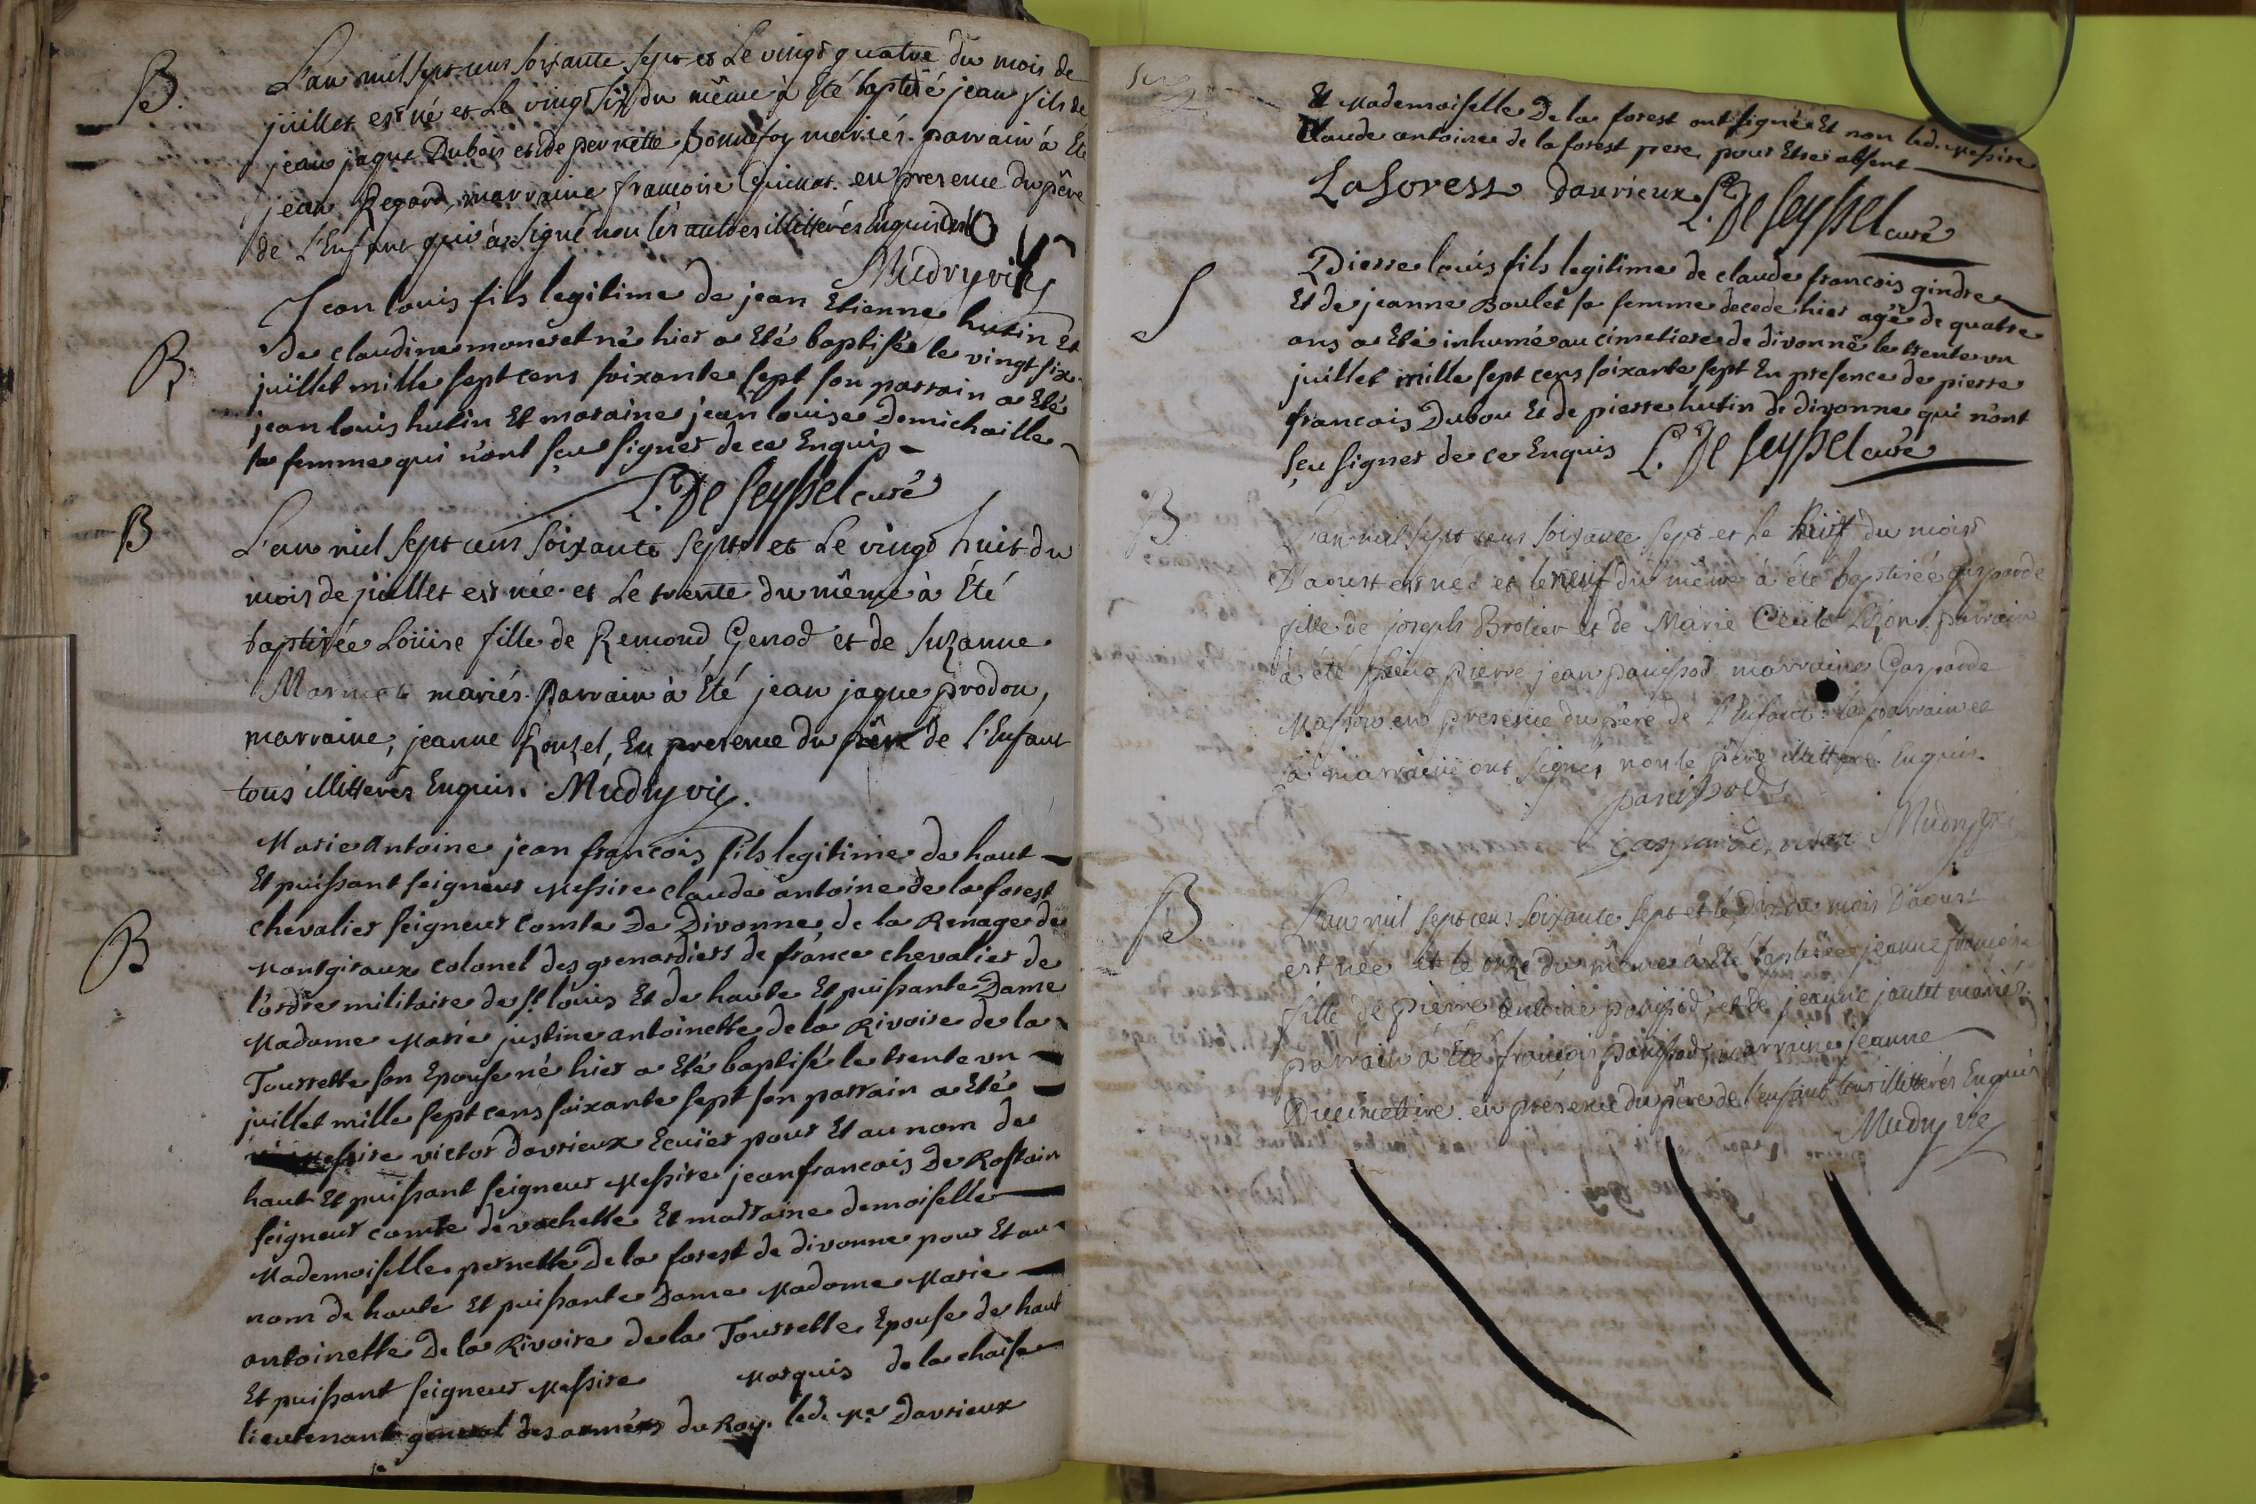 B.
L'an mil sept cens soixante sept et Le vingt quatre du mois de
juillet est né et Le vingt six du même à Eté baptisé jean fils de
jean jaque Dubois et de pernette bonnefoy mariés. parrain à Eté
jean Regard, marraine francoise Guinet. en presence du père
de L'Enfant qui à signé non lés autres illitterés Enquis
Mudry vic
B.
Jean louis fils legitime de jean Etienne hutin Et
de claudine moneret né hier a Eté baptisé le vingt six
juillet mille sept cens soixante sept son parrain a Eté
jean louis hutin Et maraine jean louise Demichaille
sa femme qui n'ont sçu signer de ce Enquis
L. De Seyssel curé
B
L'an mil sept cens soixante sept et Le vingt huit du
mois de juillet est née et Le trente du même à Eté
baptisée Loüise fille de Remond Genod et de Suzanne
mariés. Parrain à Eté jean jaque prodon,
marraine, jeanne Rouzel, En presence du père de l'Enfant
tous illitterés Enquis. Mudry vic.
B
Marie Antoine jean francois fils legitime de haut
Et puissant seigneur Messire claude antoine de la forest
chevalier seigneur comte De Divonne de la Renage de
Montgiraux colonel des grenardiers de france chevalier de
l'ordre militaire de st louis Et de haute Et puissante Dame
Madame Marie justine antoinette de la Rivoire de la
Tourrette son Epouse né hier a Eté baptisé le trente un
juillet mille sept cens soixante sept son parrain a Eté
Messire victor davrieux Ecuïer pour Et au nom de
haut Et puissant seigneur Messire jean francois De Rostain
seigneur comte de vachette Et marraine demoiselle
Mademoiselle pernette De la forest de divonne pour Et au
nom de haute Et puissante Dame Madame Marie
antoinette De la Rivoire de la Tourrette Epouse de haut
Et puissant seigneur Messire Marquis de la chaise
lieutenant general des armées du Roy. led. Mre Davrieux
Et Mademoiselle De la forest ont signé Et non led. Messire
Claude antoine de la forest pere pour Etre absent
Laforest davrieux L. De Seyssel curé
S
Pierre louis fils legitime de claude francois gindre
Et de jeanne Boulet sa femme decede hier agé de quatre
ans a Eté inhumé au cimetiere de divonne le trente un
juillet mille sept cens soixante sept En presence de pierre
francois Dubou Et de pierre hutin de divonne qui n'ont
sçu signer de ce Enquis L. De Seyssel curé
B
L'an mil sept cens soixante sept et Le huit du mois
D'aoust est née et le neuf du même à été baptisée gasparde
fille de joseph Brolier et de Marie Cecile parrain
à été pierre jean panissod marraine Gasparde
Masson en presence du père de L'Enfant. Le parrain et
la marraine ont signés non le père illitteré Enquis.
panissod
Mudry vic
B.
L'an mil sept cens soixante sept et le dix du mois D'aoust
est née et le onze du même à Eté baptisée jeanne francoise
fille de pierre antoine panissod, et de jeanne jantet mariés.
parrain à Eté françois panissod, marraine jeanne
Ducimetiere. en presence du père de l'enfant tous illitterés Enquis
Mudry vic